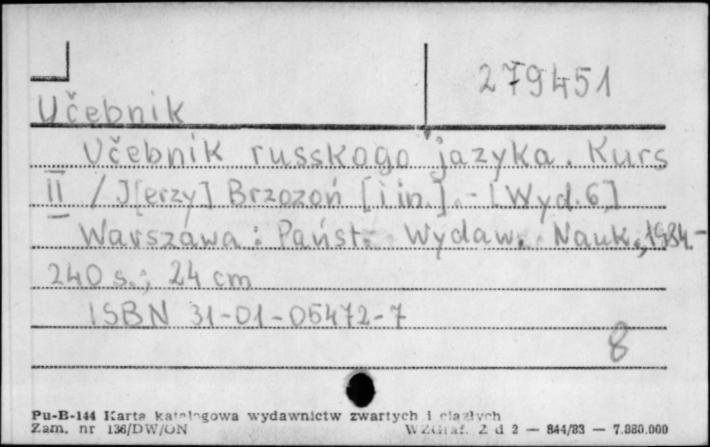 279451
Učebnik
Učebnik russkogo jazyka. Kurs
II / J[erzy] Brzozoń [i in.]. - [Wyd. 6]
Warszawa : Państ. Wydaw. Nauk., 1984. -
240 s. ; 24 cm
ISBN 31-01-05472-7
8
Pu-B-144 Karta katalogowa wydawnictw zwartych i ciągłych
Zam. nr 136/DW/ON WZGraf. Z d 2 — 844/83 — 7.880.000